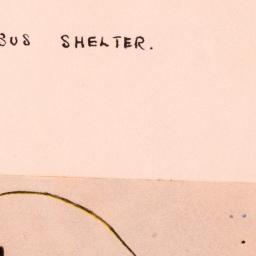 BUS SHELTER.